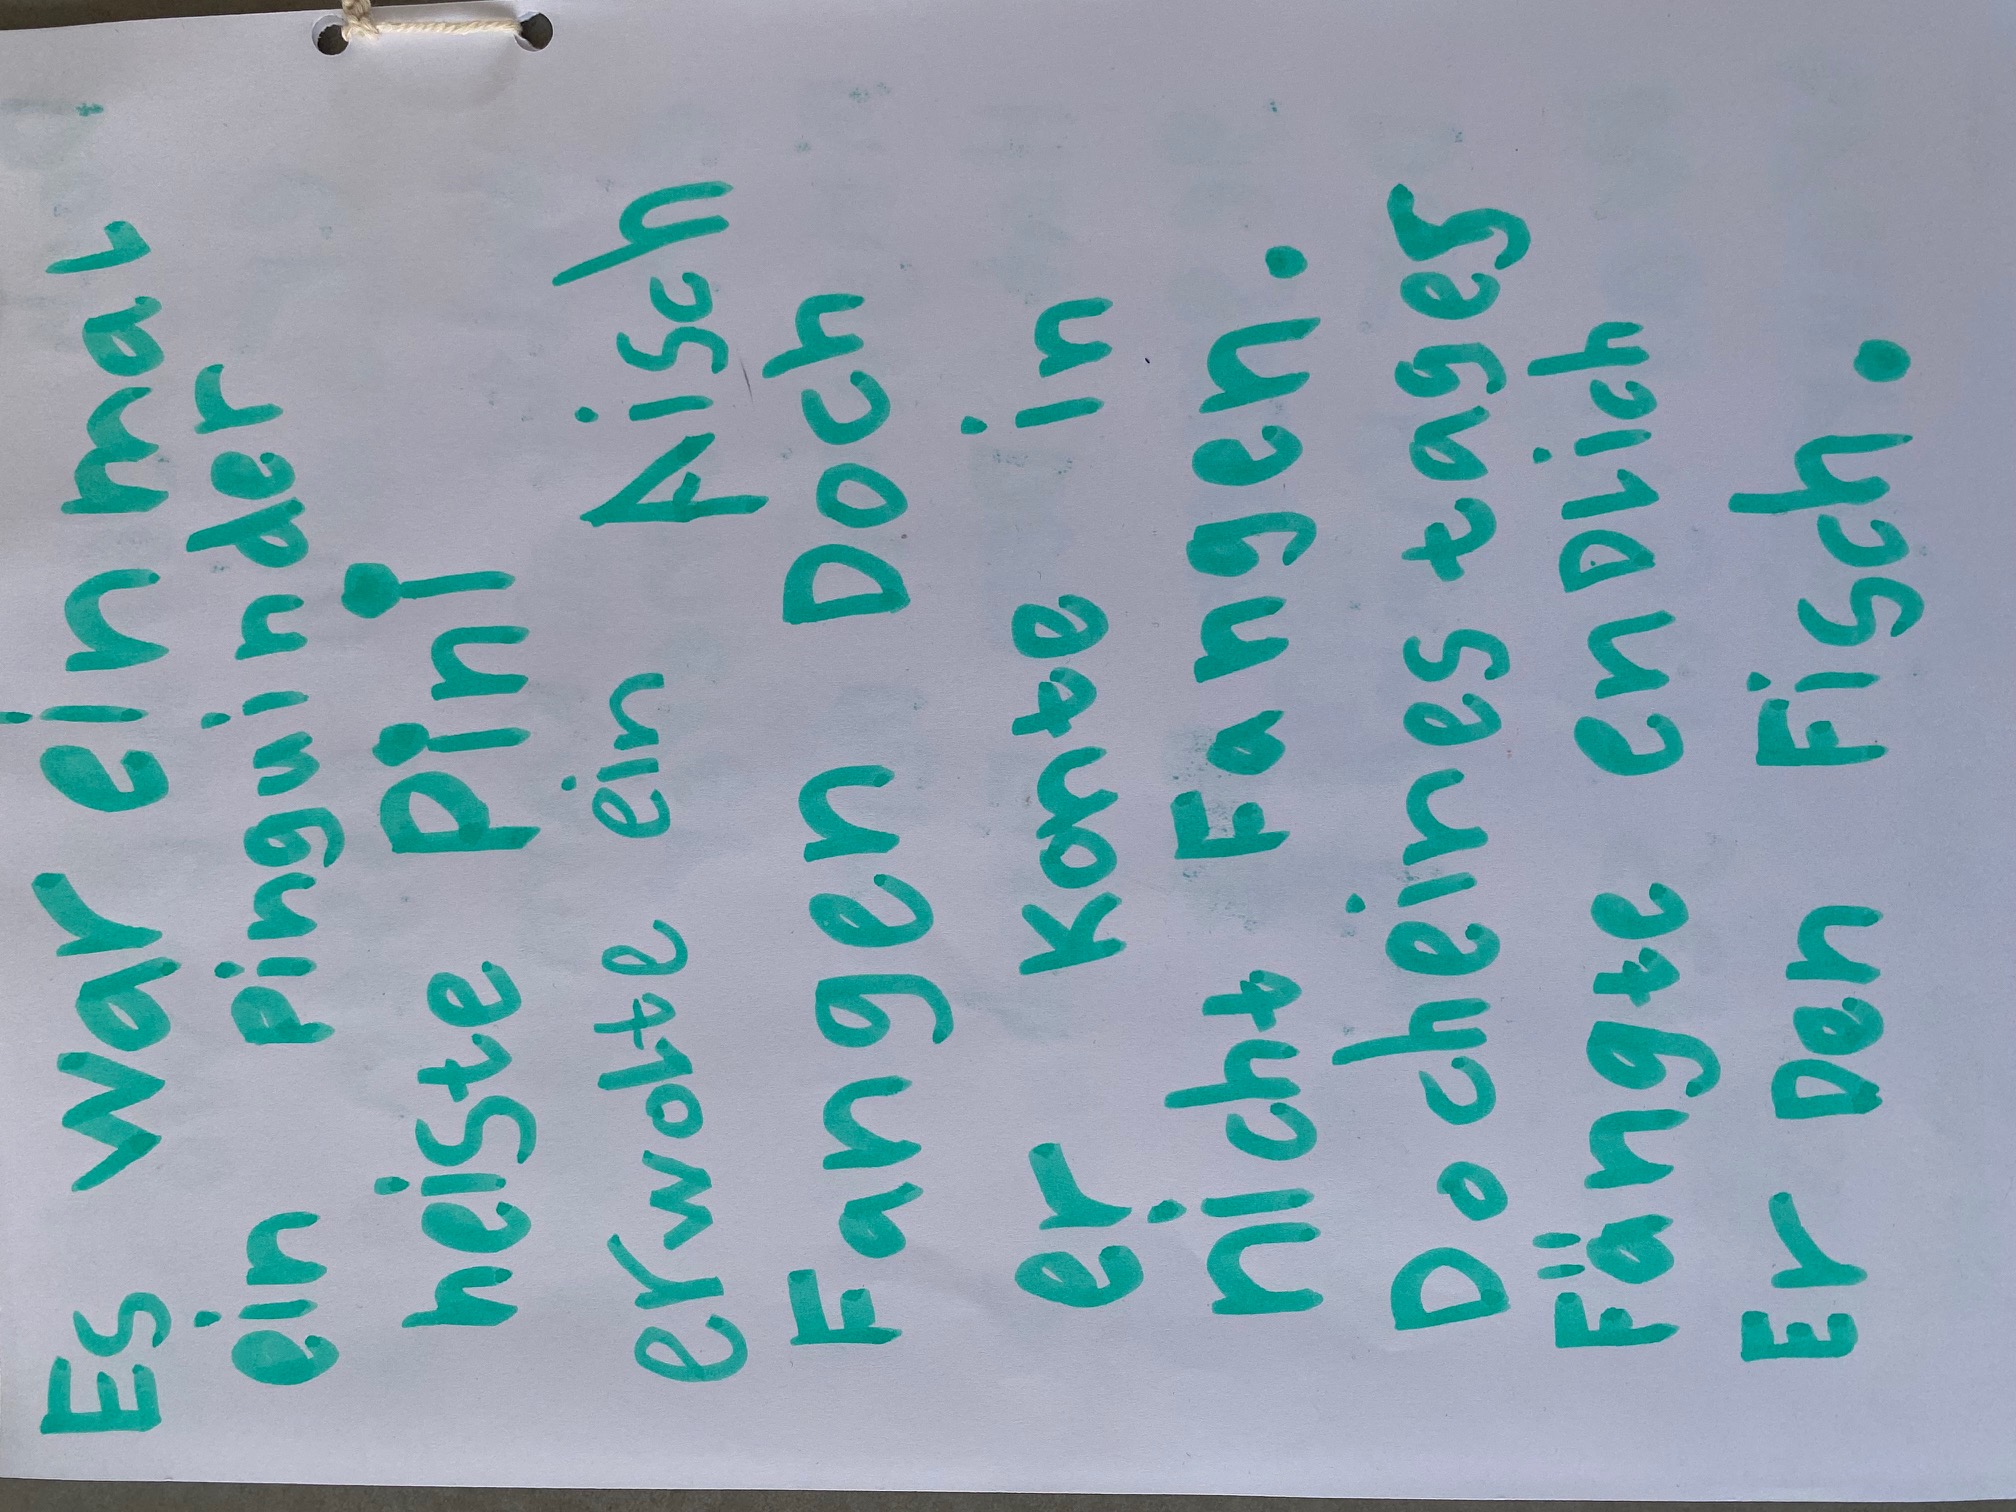 Es war ein mal
ein Pinguinder
heiste Pini
erwolte ein Aisch
Fangen Doch
er Konte in
nicht Fangen.
Docheines tages
Fängte enDlich
Er Den Fisch.